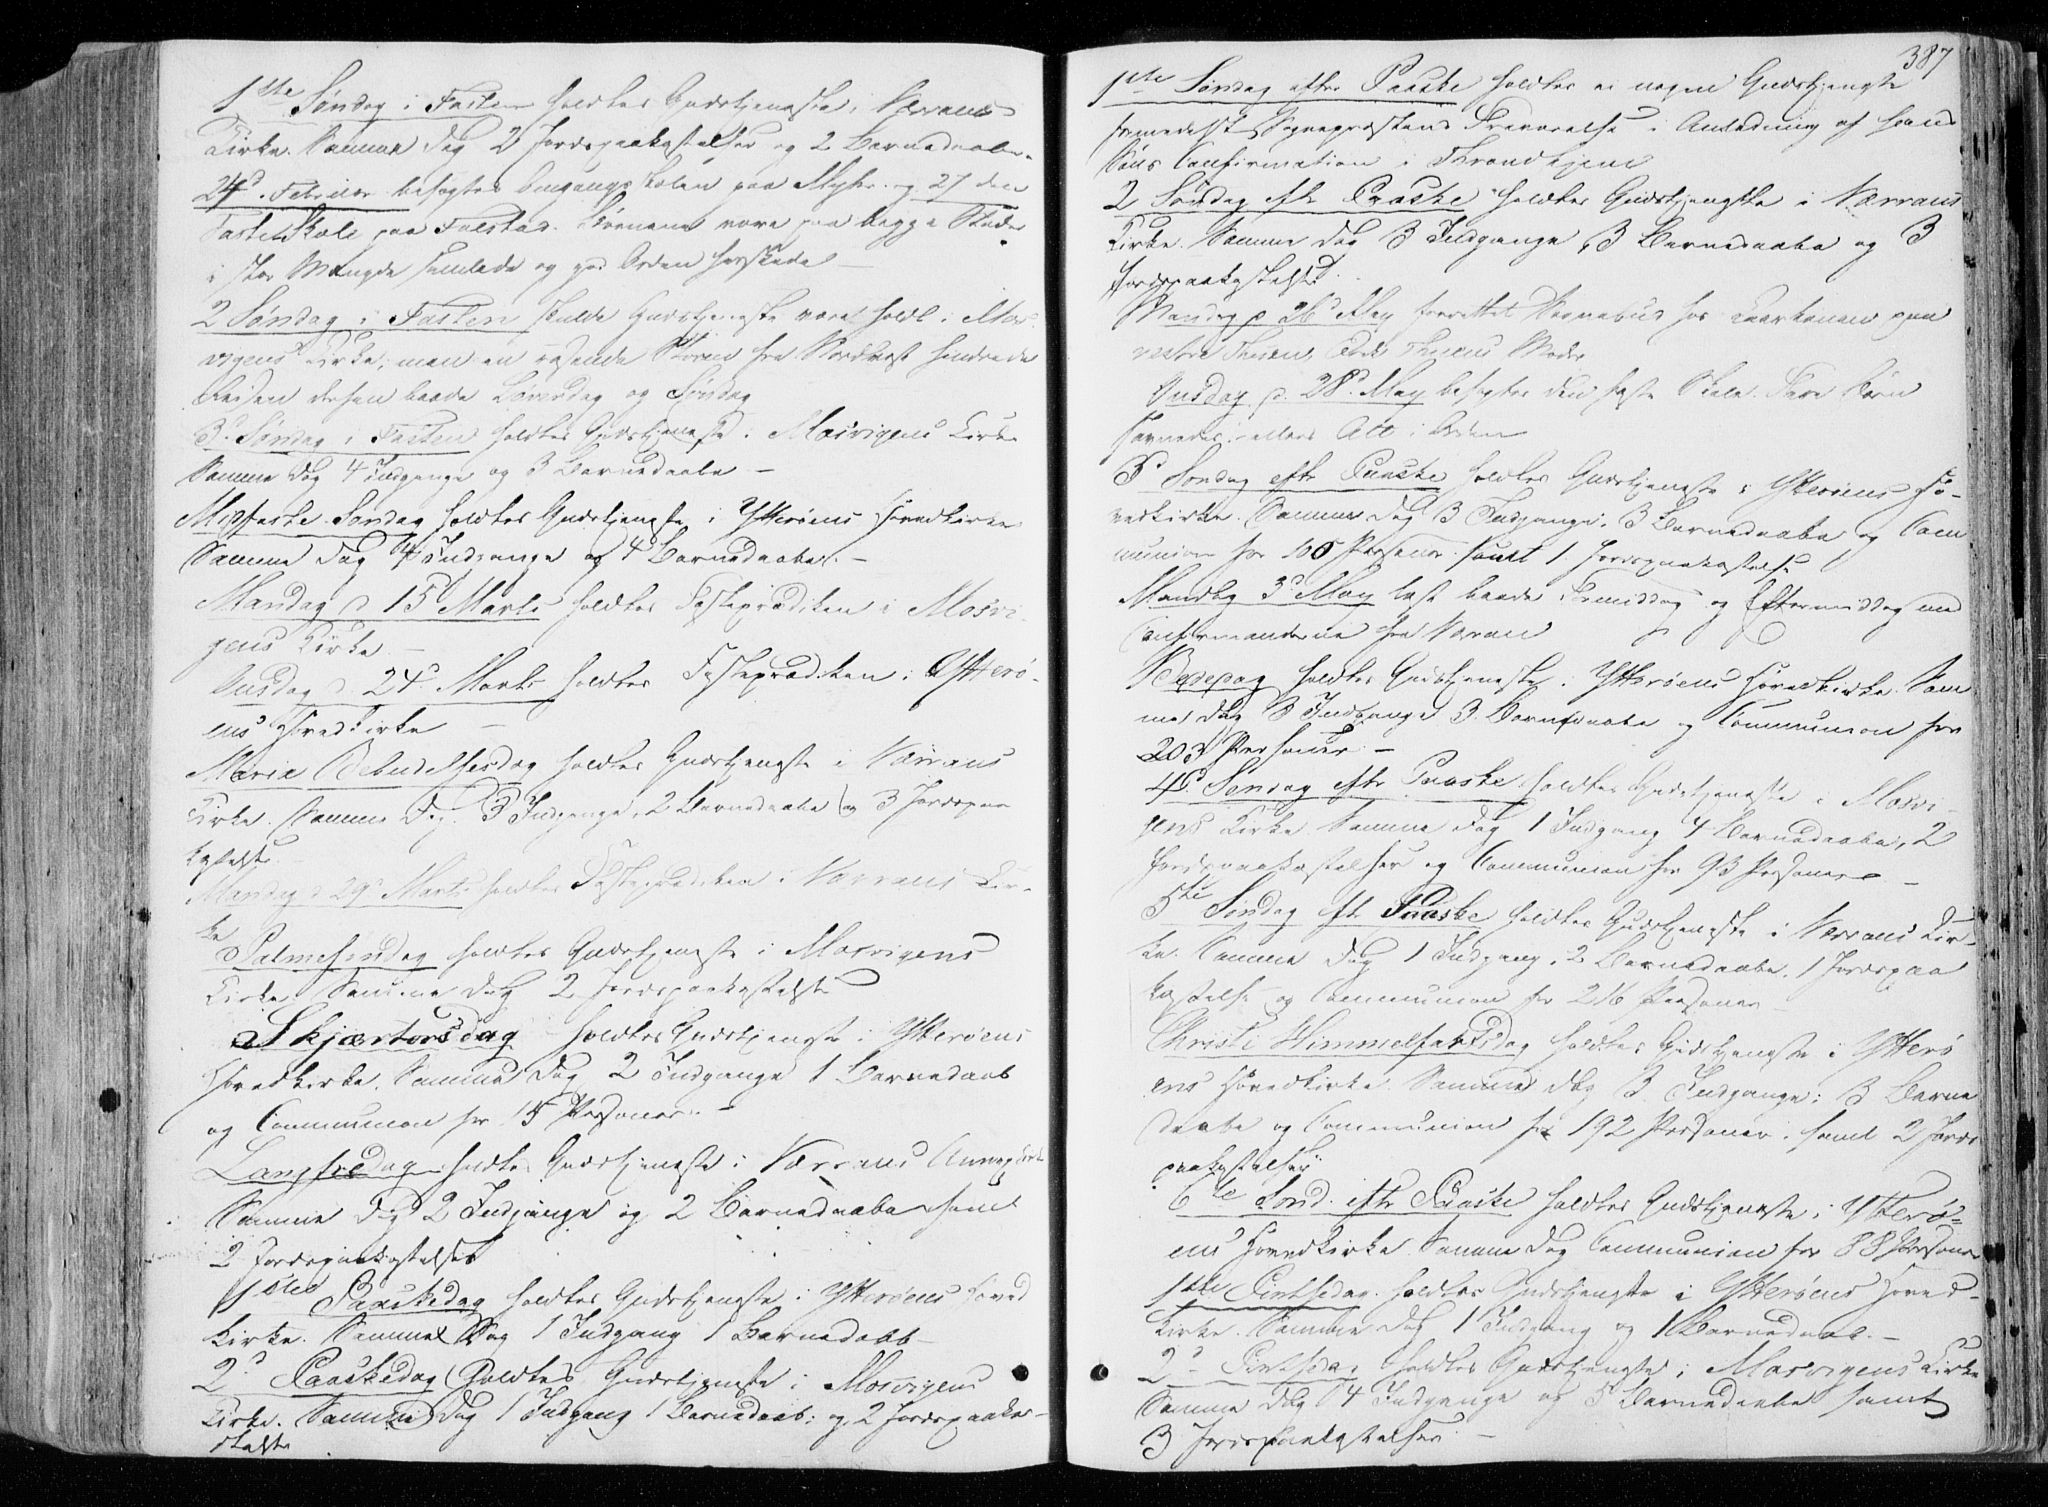 1ste Søndag i Fasten holdtes Gudstjeneste i Værrans
Kirke. Samme Dag 2 Jordspaakastelser og 2 Barnedaabe.
24de Februar besøgtes Omgangsskolen paa Myhr og 27 den
faste Skole paa Falstad. Børnene vare paa begge Steder
i stor Mængde samlede og god Orden herskede
2 Søndag i Fasten skulde Gudstjeneste være holdt i Mos-
vigens Kirke; men en rasende Storm fra Nordvest hindrede
Reisen dersen baade Løverdag og Søndag
3d Søndag i Fasten holdtes Gudstjeneste i Mosvigens Kirke
Samme Dag 4 Indgange og 3 Barnedaabe –
Midfaste Søndag holdtes Gudstjeneste i Ytterøens Hovedkirke
Samme Dag 4 Indgange og 4 Barnedaabe. –
Mandag d 15d Marts holdtes Fasteprædiken i Mosvi-
gens Kirke –
Onsdag d. 24d Marts holdtes Fasteprædiken i Ytterø-
ens Hovedkirke –
Maria Bebudelsesdag holdtes Gudstjeneste i Værrans
Kirke. Samme Dag 3 Indgange, 2 Barnedaabe og 3 Jordspaa-
kastelse.
Mandag d 29d Marts holdtes Fasteprædiken i Værrans Kir-
ke
Palmesøndag holdtes Gudstjeneste i Mosvigens
Kirke. Samme Dag 2 Jordspaakastelse
Skjærtorsdag holdtes Gudstjeneste i Ytterøens
Hovedkirke. Samme Dag 2 Indgange 1 Barnedaab
og Communion for 15 Personer. –
Langfredag holdtes Gudstjeneste i Værrans Annexkirke
Samme Dag 2 Indgange og 2 Barnedaabe samt
2 Jordspaakastelser
1ste Paaskedag holdtes Gudstjeneste i Ytterøens Hoved
kirke. Samme Dag 1 Indgang 1 Barnedaab –
2d Paaskedag holdtes Gudstjeneste i Mosvigens
Kirke. Samme Dag 1 Indgang 1 Barnedaab; og 2 Jordspaaka-
stelse
387
1ste Søndag efter Paaske holdtes ei nogen Gudstjeneste
formedelst Sognepræstens Fraværelse i Anledning af hans
Søns Confirmation i Throndhjem
2 Søndag eftr Paaske holdtes Gudstjeneste i Værrans
Kirke. Samme Dag 3 Indgange, 3 Barnedaabe og 3
Jordspaakastelser.
Mandag d 26d May forrettet Sognebud hos Kaarkonen paa
vestre Thinen, Thinens Moder
Onsdag d. 28d. May besøgtes den faste Skole. Fare Børn
savnedes; ellers Alt i Orden
3d Søndag eftr Paaske holdtes Gudstjeneste i Ytterøens Ho-
vedkirke. Samme Dag 3 Indgange, 3 Barnedaabe og Com
munion for 105 Personer samt 1 Jordspaakastelse
Mandag 3d May læst baade Formiddag og Eftermiddag med
Confirmanderne fra Værran
Bededag holdtes Gudstjeneste i Ytterøens Hovedkirke. Sam
me Dag 3 Indgange 3 Barnedaabe og Communion for
203 Personer. –
4d Søndag eftr Paaske holdtes Gudstjeneste i Mosvi-
gens Kirke. Samme Dag 1 Indgang 4 Barnedaabe, 2
Jordspaakastelser og Communion for 93 Personer –
5te Søndag eftr Paaske holdtes Gudstjeneste i Værrans Kir-
ke. Samme Dag 1 Indgang, 2 Barnedaabe, 1 Jordspaa
kastelse og Communion for 216 Personer
Christi Himmelfartsdag holdtes Gudstjeneste i Ytterø
ens Hovedkirke. Samme Dag 3 Indgange; 3 Barne
daabe og Communion for 192 Personer, samt 2 Jords
paakastelser
6te Sønd. eftr Paaske holdtes Gudstjeneste i Ytterø-
ens Hovedkirke. Samme Dag Communion for 88 Personer
1ste Pintsedag holdtes Gudstjeneste i Ytterøens Hoved-
kirke. Samme Dag 1 Indgang og 1 Barnedaab. –
2d Pintsedag holdtes Gudstjeneste i Mosvigens Kirke
Samme Dag 4 Indgange og 5 Barnedaabe samt
3 Jordspaakastelser –